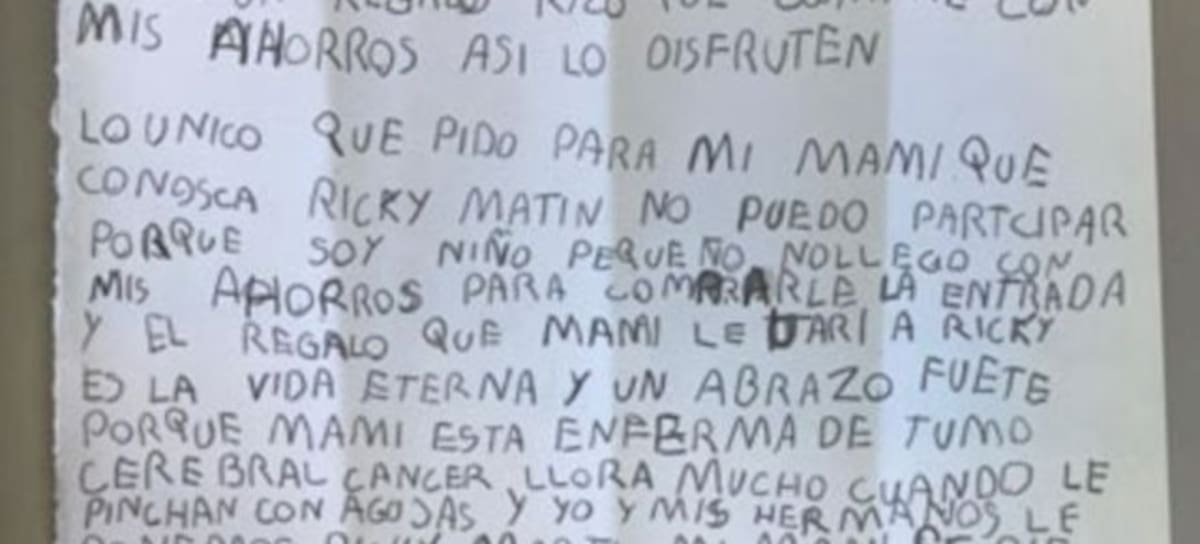 REGALO RIZO QUE COMPRE CON
MIS AHORROS ASI LO DISFRUTEN
LO UNICO QUE PIDO PARA MI MAMI QUE
CONOSCA RICKY MATIN NO PUEDO PARTCIPAR
PORQUE SOY NIÑO PEQUEÑO NO LLEGO CON
MIS AHORROS PARA COMARARLE LA ENTRADA
Y EL REGALO QUE MAMI LE DARI A RICKY
ES LA VIDA ETERNA Y UN ABRAZO FUETE
PORQUE MAMI ESTA ENFERMA DE TUMO
CEREBRAL CANCER LLORA MUCHO CUANDO LE
PINCHAN CON AGOJAS Y YO Y MIS HERMANOS LE